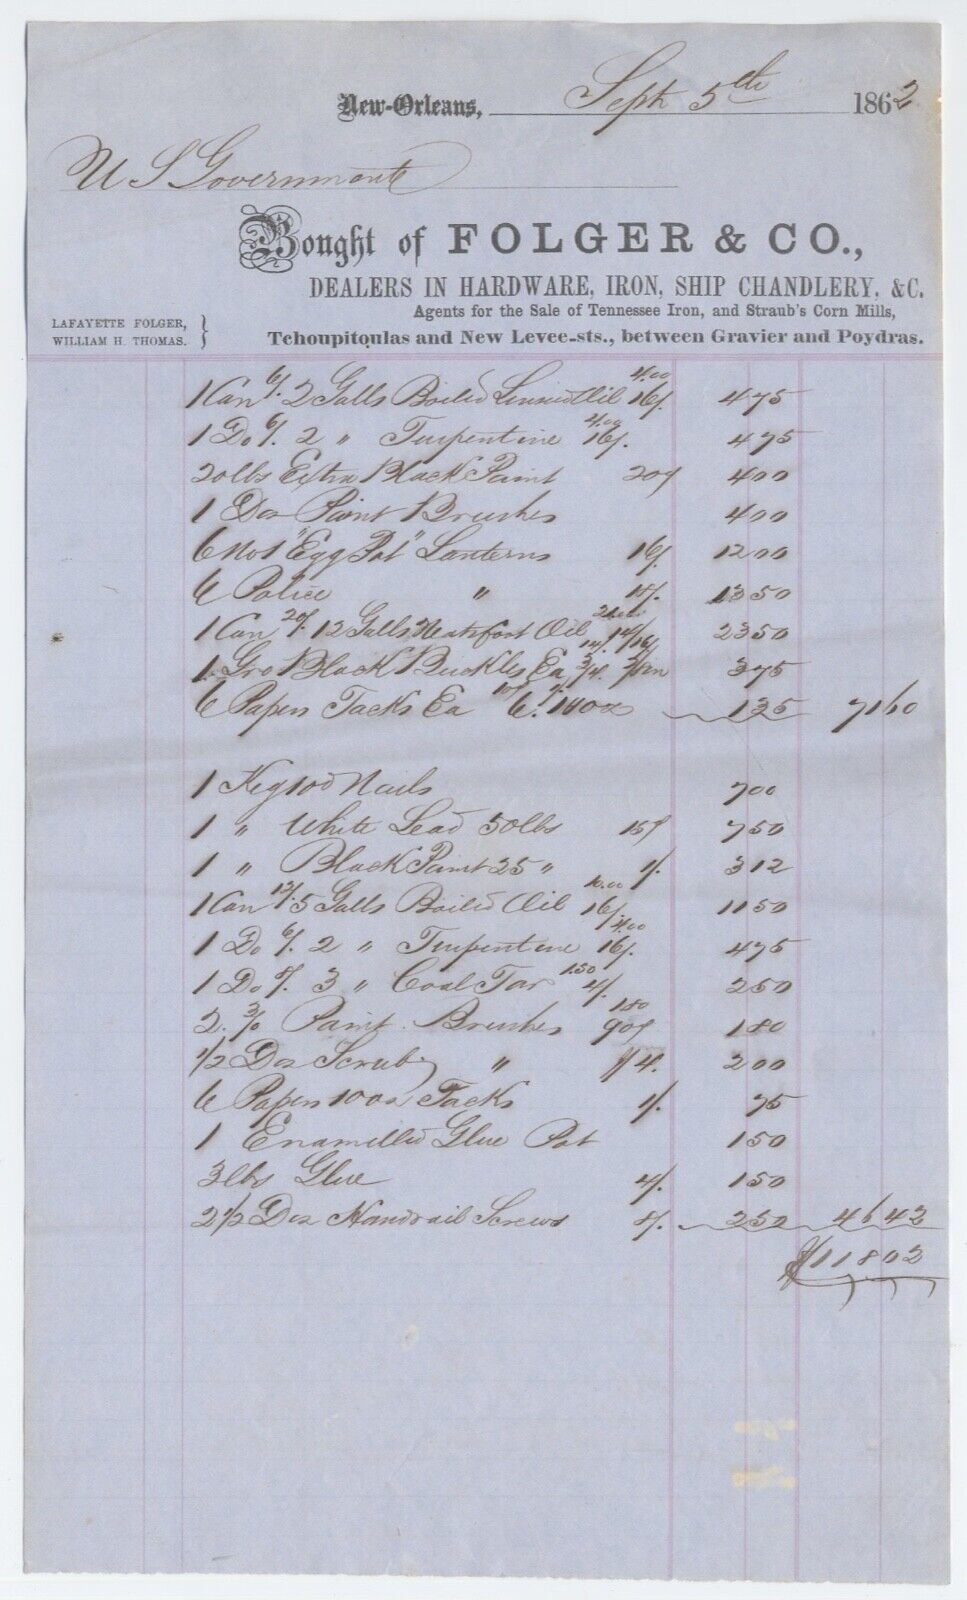 New-Orleans, Sept 5th 1862
U S Governmente
Bought of FOLGER & CO.,
DEALERS IN HARDWARE, IRON, SHIP CHANDLERY, &C.
Agents for the Sale of Tennessee Iron, and Straub's Corn Mills,
LAFAYETTE FOLGER,
WILLIAM H. THOMAS.
Tchoupitoulas and New Levee-sts., between Gravier and Poydras.
1 Can 6/. 2 Galls Boiled Linseed Oil 4.00 16/. 475
1 Do 6/. 2 " Turpentine 4.00 16/. 475
20 lbs Extra Black Paint 20¢ 400
1 Doz Paint Brushes 400
6 No 1 "Egg Pat" Lanterns 16/. 1200
6 Police " 18/. 1350
1 Can 20/. 12 Galls Neatsfoot Oil 14/ 2350
1 Gro Black Buckles Ea 3/4 375
6 Papers Tacks Ea 6. 135 7160
1 Keg 10d Nails 700
1 " White Lead 50 lbs 15¢ 750
1 " Black Paint 25 " 1/. 312
1 Can 12/. 5 Galls Boiled Oil 10.00 16/ 1150
1 Do 6/. 2 " Turpentine 4.00 16/. 475
1 Do 8/. 3 " Coal Tar 1.50 4/. 250
2 Paint Brushes 1.80 90¢ 180
1/2 Doz Scrub " $4. 200
6 Papers 10 oz Tacks 1/. 75
1 Enamelled Glue Pot 150
3 lbs Glue 4/. 150
2 1/2 Doz Handrail Screws 8/. 250 4642
$11802